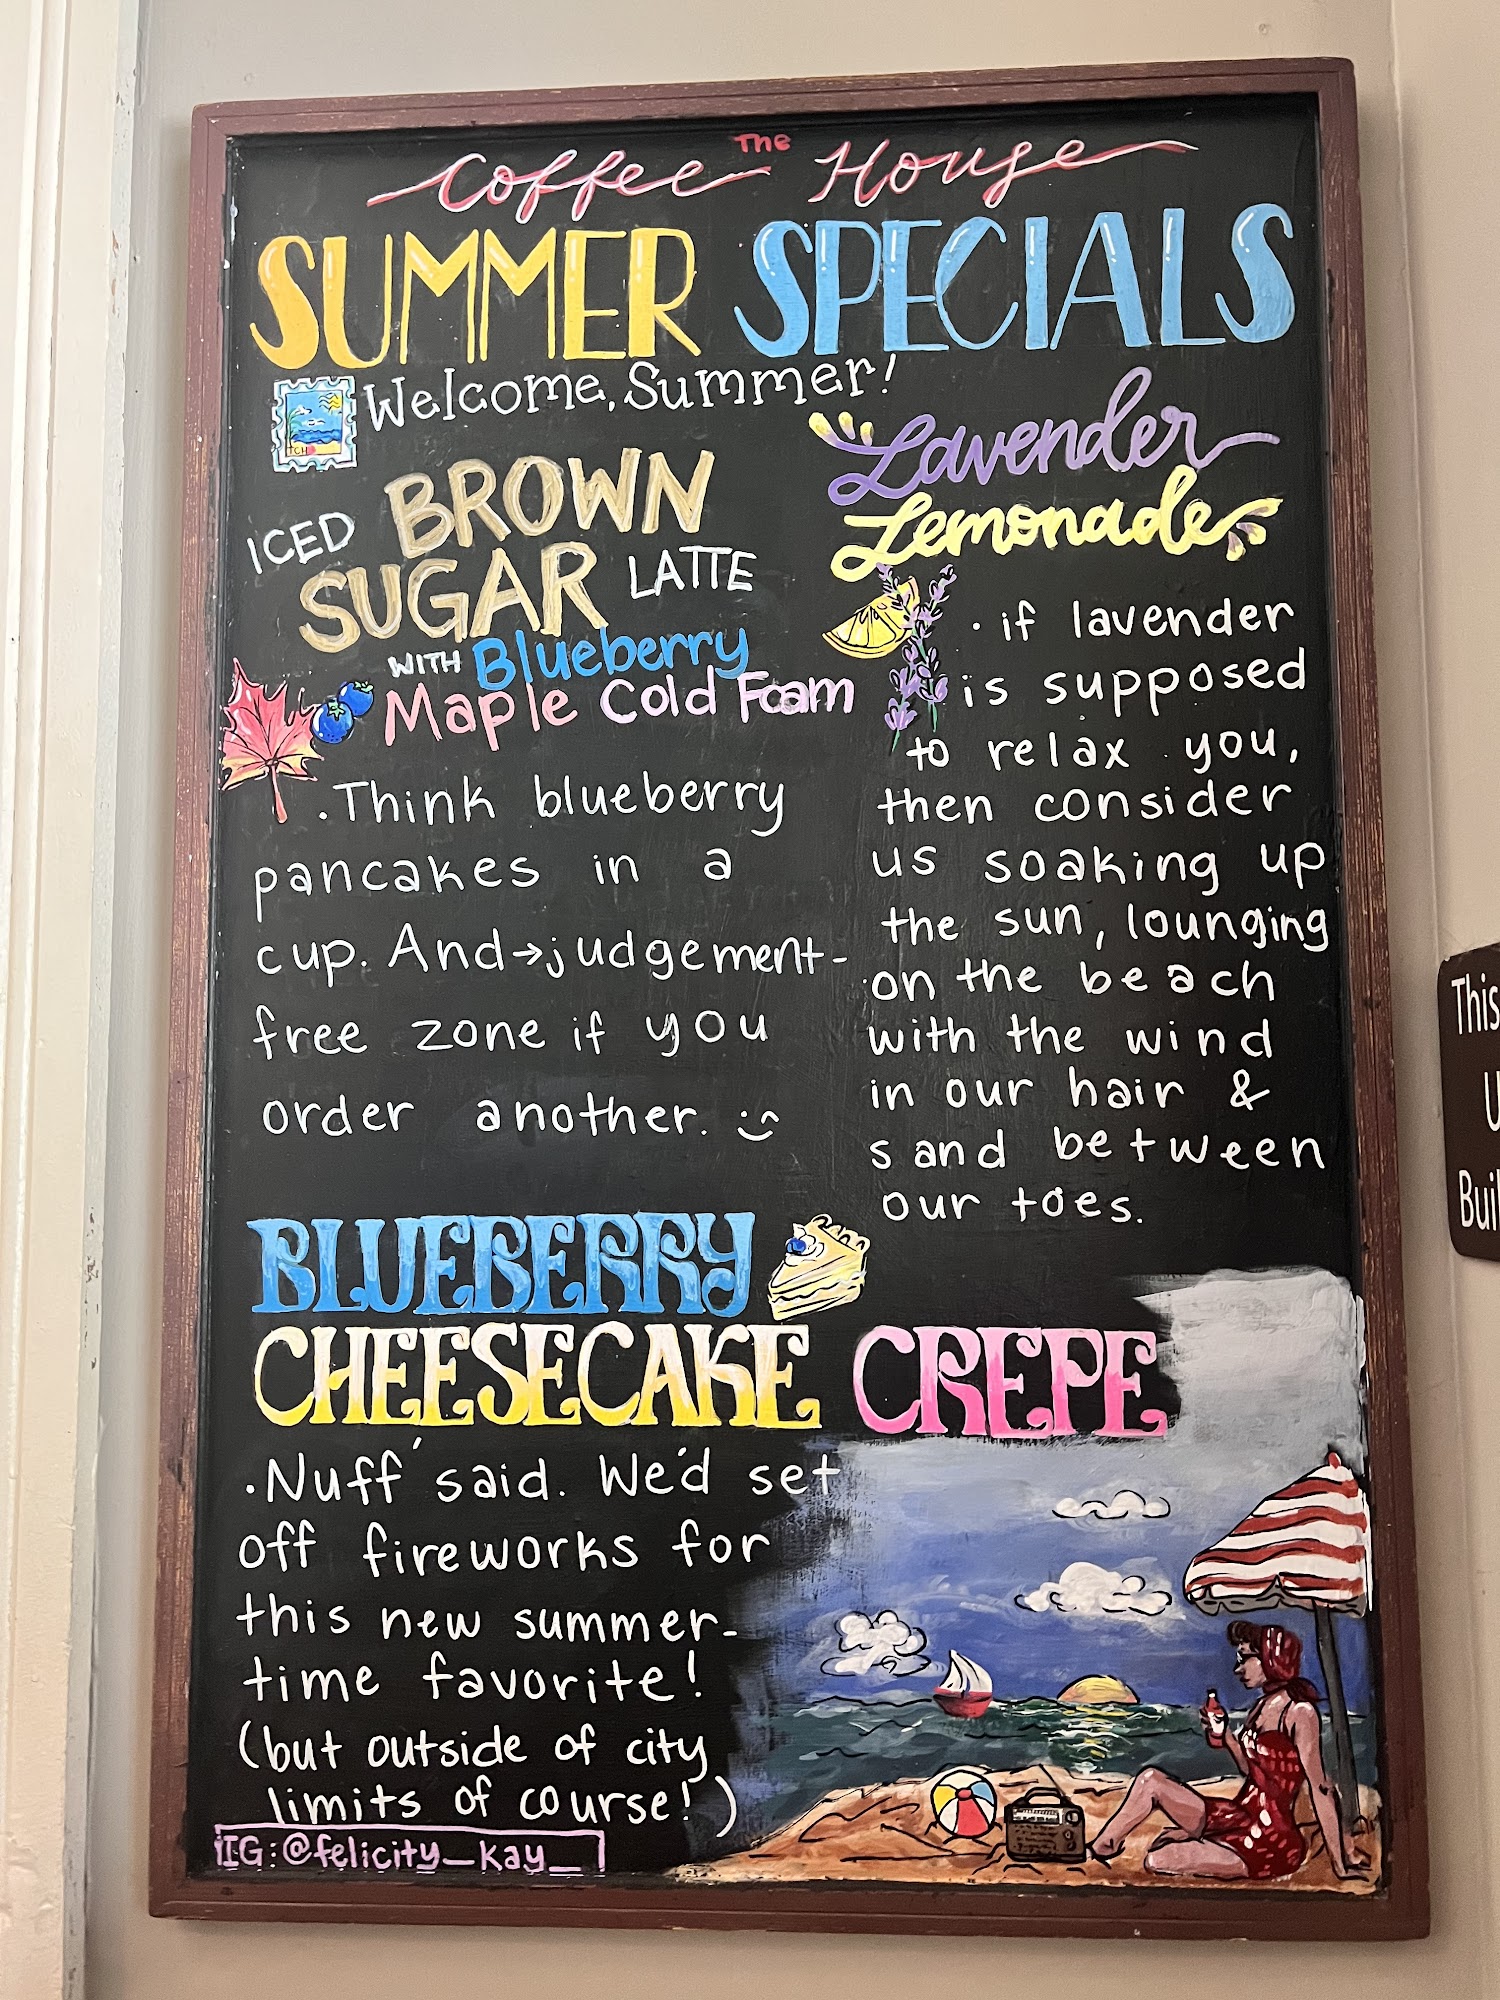 The
Coffee House
SUMMER SPECIALS
TCH
Welcome, Summer!
ICED BROWN
SUGAR LATTE
WITH Blueberry
Maple Cold Foam
. Think blueberry
pancakes in a
cup. And→judgement-
free zone if you
order another. :)
Lavender
Lemonade
· if lavender
is supposed
to relax you,
then consider
us soaking up
the sun, lounging
on the beach
with the wind
in our hair &
sand between
our toes.
BLUEBERRY
CHEESECAKE CREPE
· Nuff' said. We'd set
off fireworks for
this new summer-
time favorite!
(but outside of city
limits of course!)
IG: @felicity_kay_
This
Buil